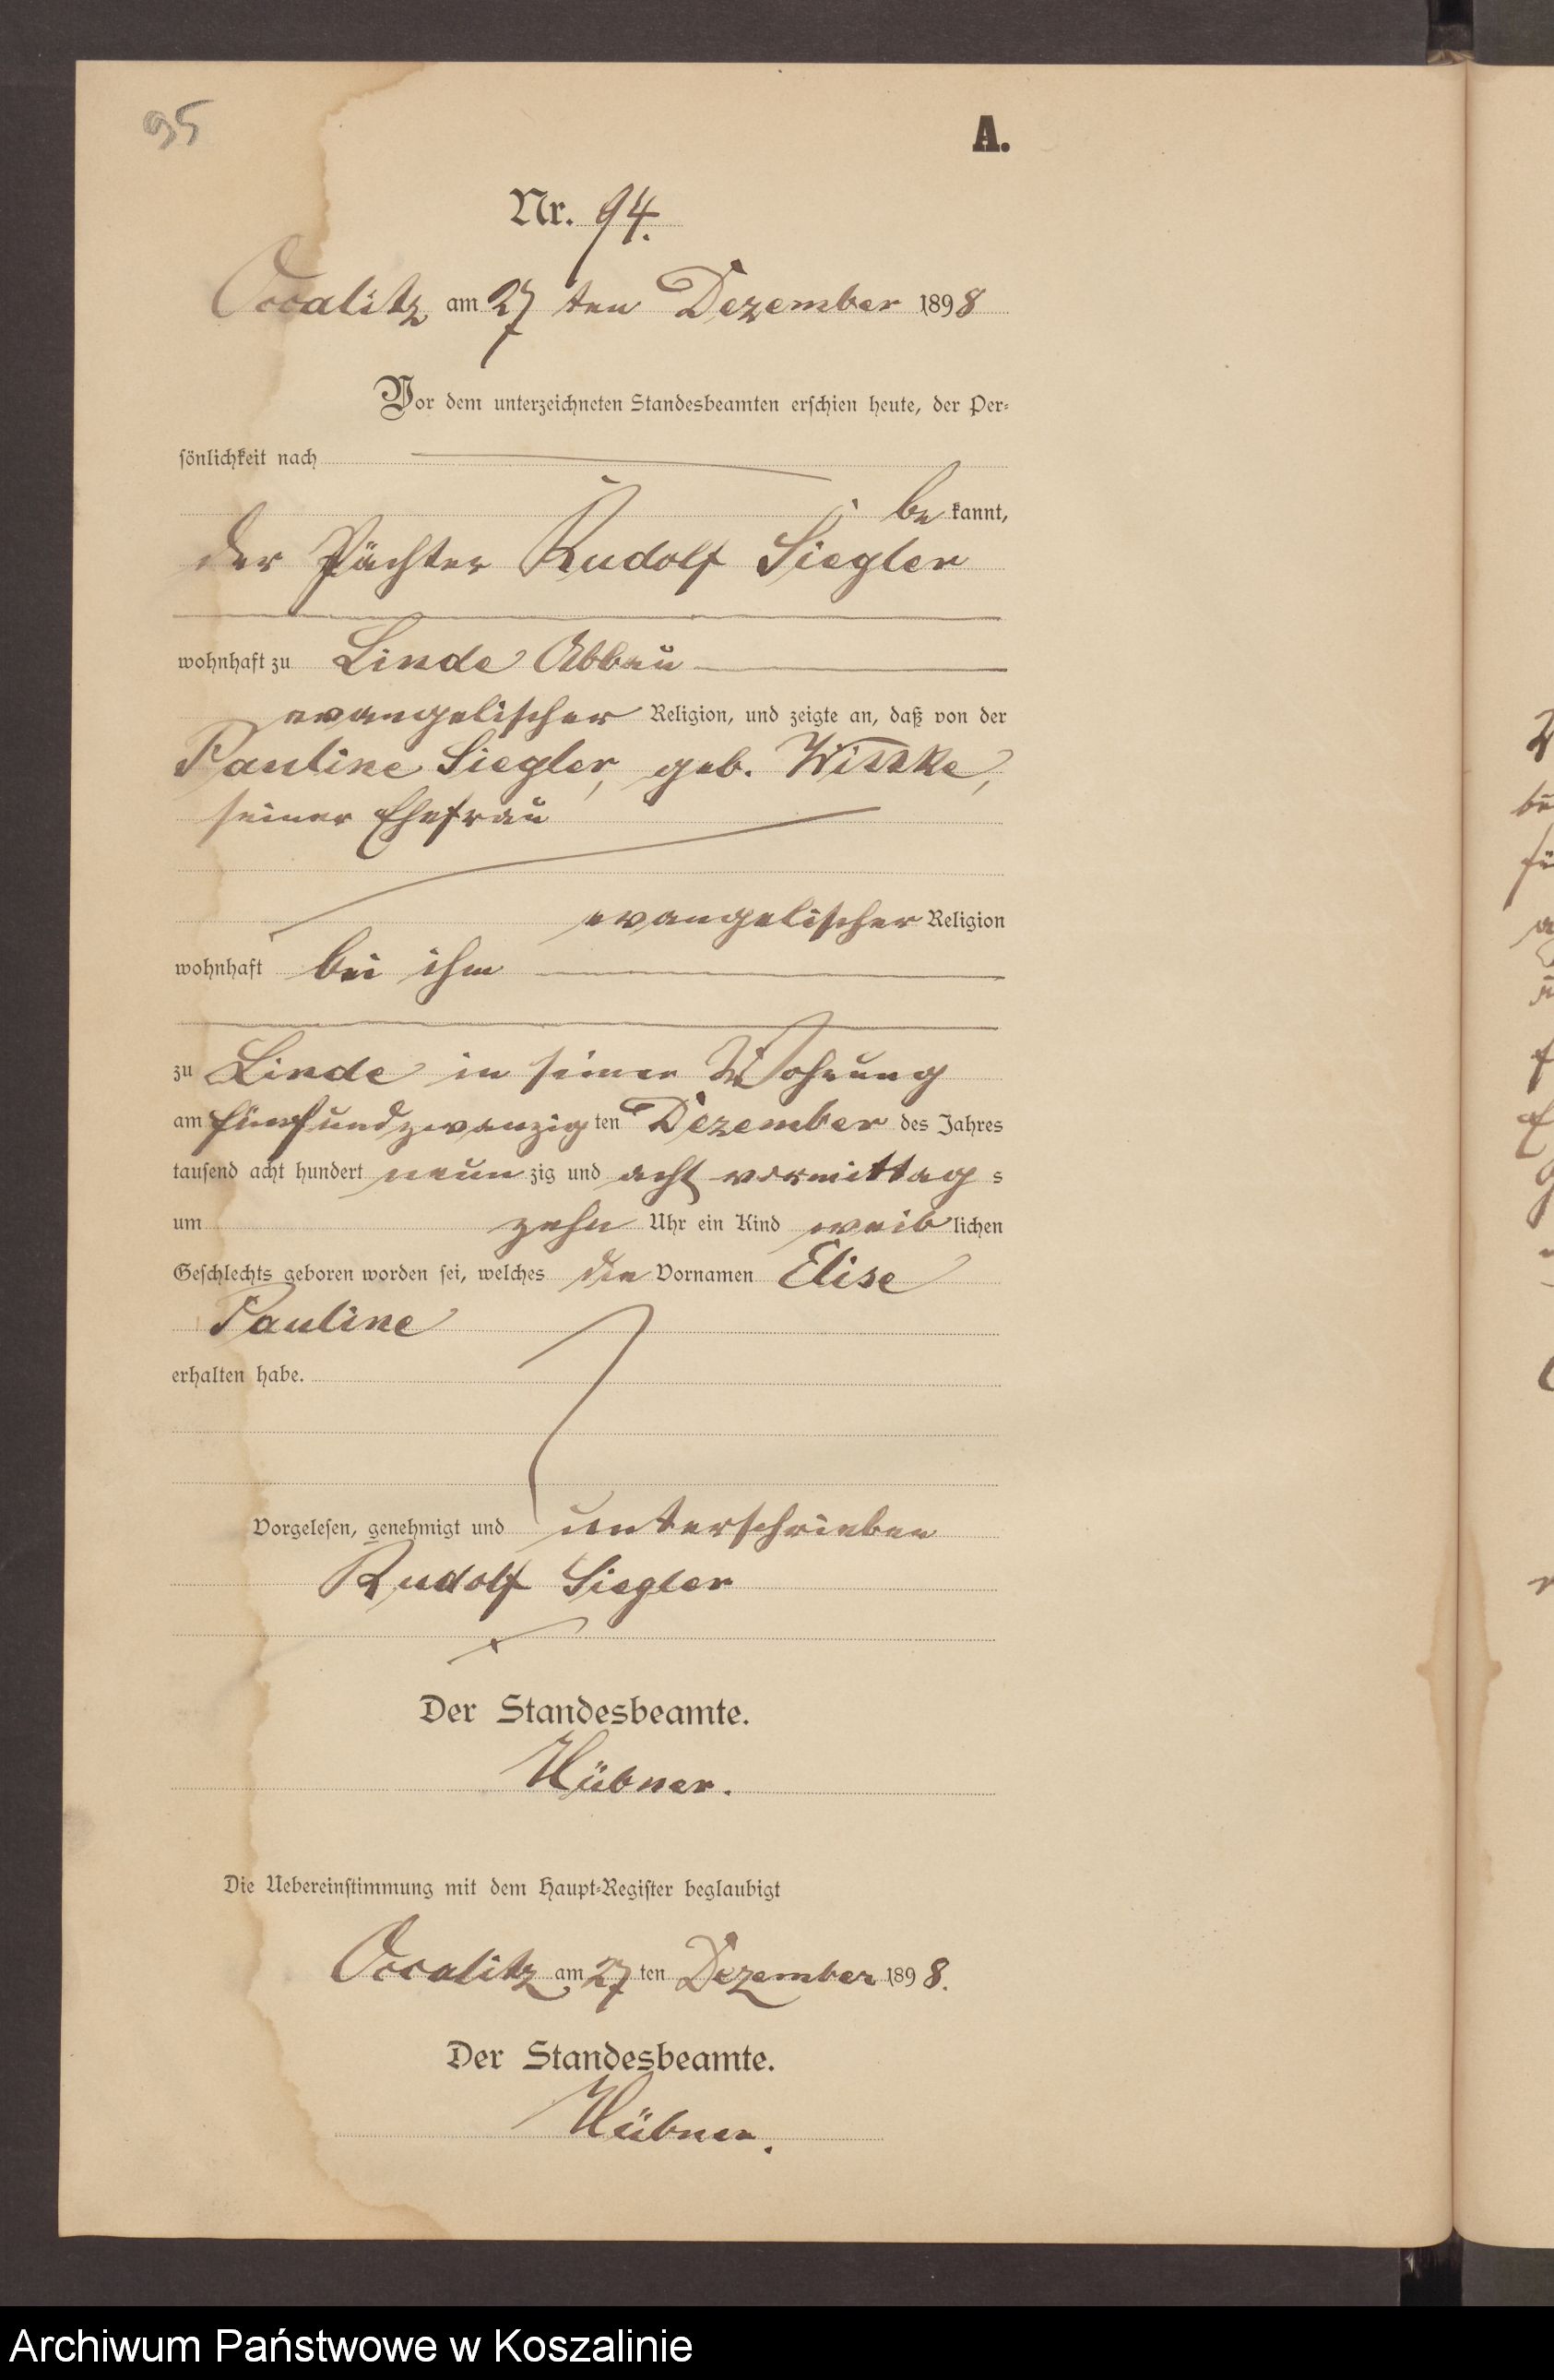 95
A.
Nr. 94.
Occalitz am 27 ten Dezember 1898
Vor dem unterzeichneten Standesbeamten erschien heute, der Per-
sönlichkeit nach
be kannt,
der Pächter Rudolf Siegler
wohnhaft zu Linde Abbau
evangelischer Religion, und zeigte an, daß von der
Pauline Siegler, geb. Witzke,
seiner Ehefrau
evangelischer Religion
wohnhaft bei ihm
zu Linde in seiner Wohnung
am fünfundzwanzig ten Dezember des Jahres
tausend acht hundert neun zig und acht vormittag s
um zehn Uhr ein Kind weib lichen
Geschlechts geboren worden sei, welches die Vornamen Elise
Pauline
erhalten habe.
Vorgelesen, genehmigt und unterschrieben
Rudolf Siegler
Der Standesbeamte.
Hübner.
Die Uebereinstimmung mit dem Haupt-Register beglaubigt
Occalitz am 27 ten Dezember 1898.
Der Standesbeamte.
Hübner.
Archiwum Państwowe w Koszalinie